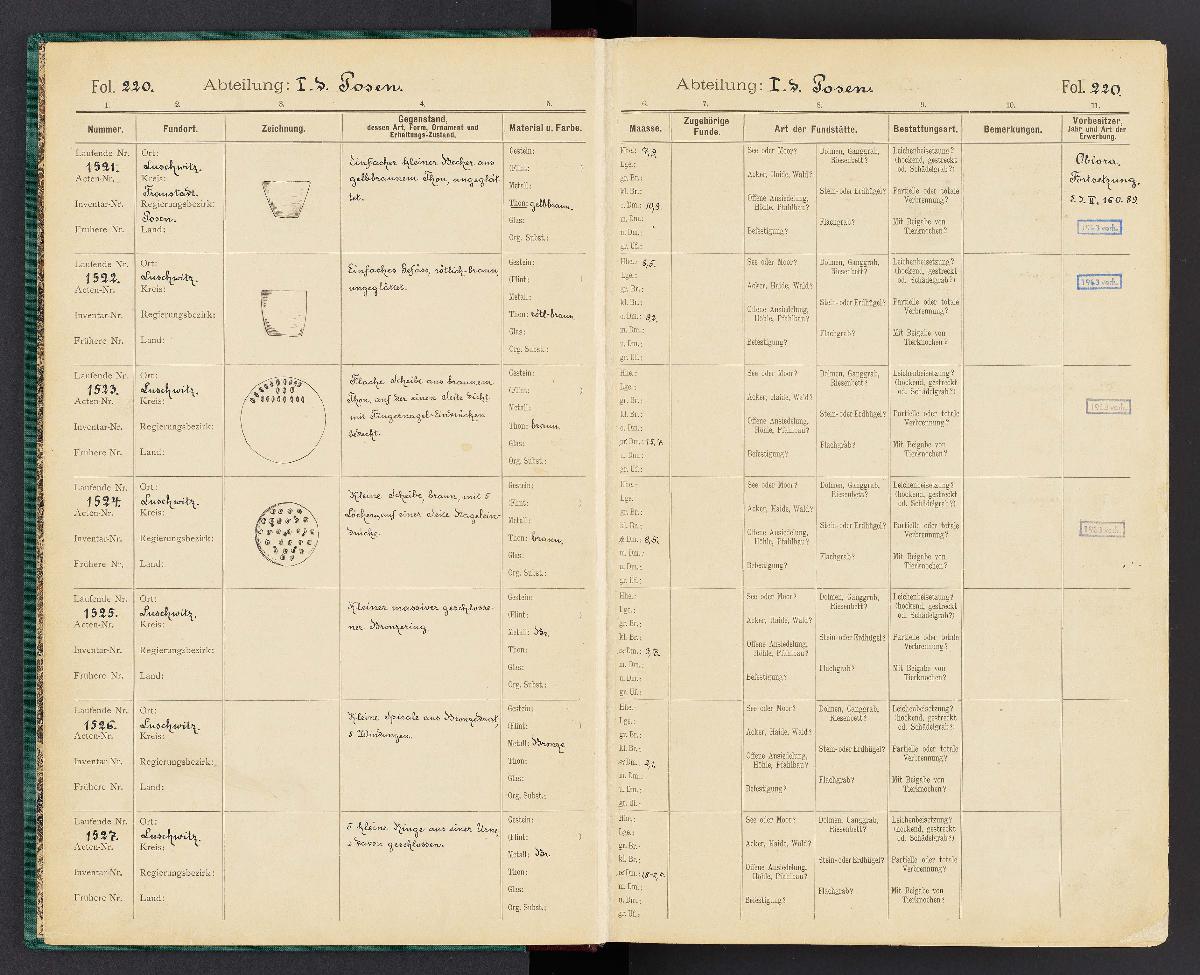 Fol. 220. Abteilung: I.d. Posen.
1. 2. 3. 4. 5.
Nummer. Fundort. Zeichnung. Gegenstand, dessen Art, Form, Ornament und Erhaltungs-Zustand. Material u. Farbe.
Laufende Nr. 1521. Acten-Nr. Inventar-Nr. Frühere Nr.
Ort: Luschwitz. Kreis: Fraustadt. Regierungsbezirk: Posen. Land:
Einfacher kleiner Becher aus
gelbbraunem Thon, ungeglät-
tet.
Gestein:
(Flint: )
Metall:
Thon: gelbbraun.
Glas:
Org. Subst.:
Laufende Nr. 1522. Acten-Nr. Inventar-Nr. Frühere Nr.
Ort: Luschwitz. Kreis: Regierungsbezirk: Land:
Einfaches Gefäss, rötlich-braun
ungeglättet.
Gestein:
(Flint: )
Metall:
Thon: rötl-braun
Glas:
Org. Subst.:
Laufende Nr. 1523. Acten-Nr. Inventar-Nr. Frühere Nr.
Ort: Luschwitz. Kreis: Regierungsbezirk: Land:
Flache Scheibe aus braunem
Thon, auf der einen Seite dicht
mit Fingernagel-Eindrücken
bedeckt.
Gestein:
(Flint: )
Metall:
Thon: braun.
Glas:
Org. Subst.:
Laufende Nr. 1524. Acten-Nr. Inventar-Nr. Frühere Nr.
Ort: Luschwitz. Kreis: Regierungsbezirk: Land:
Kleine Scheibe, braun, mit 5
Löchern, auf einer Seite Nagelein-
drücke.
Gestein:
(Flint: )
Metall:
Thon: braun.
Glas:
Org. Subst.:
Laufende Nr. 1525. Acten-Nr. Inventar-Nr. Frühere Nr.
Ort: Luschwitz. Kreis: Regierungsbezirk: Land:
Kleiner massiver geschlosse-
ner Bronzering
Gestein:
(Flint: )
Metall: Br.
Thon:
Glas:
Org. Subst.:
Laufende Nr. 1526. Acten-Nr. Inventar-Nr. Frühere Nr.
Ort: Luschwitz. Kreis: Regierungsbezirk: Land:
Kleine Spirale aus Bronzedraht
5 Windungen.
Gestein:
(Flint: )
Metall: Bronze
Thon:
Glas:
Org. Subst.:
Laufende Nr. 1527. Acten-Nr. Inventar-Nr. Frühere Nr.
Ort: Luschwitz. Kreis: Regierungsbezirk: Land:
5 kleine Ringe aus einer Urne
davon geschlossen.
Gestein:
(Flint: )
Metall: Br.
Thon:
Glas:
Org. Subst.:
Abteilung: I.d. Posen. Fol. 220
6. 7. 8. 9. 10. 11.
Maasse. Zugehörige Funde. Art der Fundstätte. Bestattungsart. Bemerkungen. Vorbesitzer, Jahr und Art der Erwerbung.
Hhe.: 7,9.
Lge.:
gr. Br.:
kl. Br.:
o. Dm.: 10,9
m. Dm.:
u. Dm.:
gr. Uf.:
See oder Moor? Dolmen, Ganggrab, Riesenbett?
Acker, Haide, Wald?
Stein- oder Erdhügel?
Offene Ansiedelung, Höhle, Pfahlbau?
Flachgrab?
Befestigung?
Leichenbeisetzung? (hockend, gestreckt od. Schädelgrab?)
Partielle oder totale Verbrennung?
Mit Beigabe von Tierknochen?
Obiora.
Fortsetzung.
II. 160. 89.
1963 vorh.
Hhe.: 8,5.
Lge.:
gr. Br.:
kl. Br.:
o. Dm.: 92.
m. Dm.:
u. Dm.:
gr. Uf.:
See oder Moor? Dolmen, Ganggrab, Riesenbett?
Acker, Haide, Wald?
Stein- oder Erdhügel?
Offene Ansiedelung, Höhle, Pfahlbau?
Flachgrab?
Befestigung?
Leichenbeisetzung? (hockend, gestreckt od. Schädelgrab?)
Partielle oder totale Verbrennung?
Mit Beigabe von Tierknochen?
1963 vorh.
Hhe.:
Lge.:
gr. Br.:
kl. Br.:
o. Dm.:
gr. Dm.: 15,
u. Dm.:
gr. Uf.:
See oder Moor? Dolmen, Ganggrab, Riesenbett?
Acker, Haide, Wald?
Stein- oder Erdhügel?
Offene Ansiedelung, Höhle, Pfahlbau?
Flachgrab?
Befestigung?
Leichenbeisetzung? (hockend, gestreckt od. Schädelgrab?)
Partielle oder totale Verbrennung?
Mit Beigabe von Tierknochen?
1963 vorh.
Hhe.:
Lge.
gr. Br.:
kl. Br.:
Dm.: 8,5.
m. Dm.:
u. Dm.:
gr. Uf.:
See oder Moor? Dolmen, Ganggrab, Riesenbett?
Acker, Haide, Wald?
Stein- oder Erdhügel?
Offene Ansiedelung, Höhle, Pfahlbau?
Flachgrab?
Befestigung?
Leichenbeisetzung? (hockend, gestreckt od. Schädelgrab?)
Partielle oder totale Verbrennung?
Mit Beigabe von Tierknochen?
1963 vorh.
Hhe.:
Lge.:
gr. Br.:
kl. Br.:
Dm.:
m. Dm.:
u. Dm.:
gr. Uf.:
See oder Moor? Dolmen, Ganggrab, Riesenbett?
Acker, Haide, Wald?
Stein oder Erdhügel?
Offene Ansiedelung, Höhle, Pfahlbau?
Flachgrab?
Befestigung?
Leichenbeisetzung? (hockend, gestreckt od. Schädelgrab?)
Partielle oder totale Verbrennung?
Mit Beigabe von Tierknochen?
Hhe.:
Lge.:
gr. Br.:
kl. Br.:
Dm.: 2,1.
m. Dm.:
u. Dm.:
gr. Uf.:
See oder Moor? Dolmen, Ganggrab, Riesenbett?
Acker, Haide, Wald?
Stein- oder Erdhügel?
Offene Ansiedelung, Höhle, Pfahlbau?
Flachgrab?
Befestigung?
Leichenbeisetzung? (hockend, gestreckt od. Schädelgrab?)
Partielle oder totale Verbrennung?
Mit Beigabe von Tierknochen?
Hhe.:
Lge.:
gr. Br.:
kl. Br.:
Dm.:
m. Dm.:
u. Dm.:
gr. Uf.:
See oder Moor? Dolmen, Ganggrab, Riesenbett?
Acker, Haide, Wald?
Stein- oder Erdhügel?
Offene Ansiedelung, Höhle, Pfahlbau?
Flachgrab?
Befestigung?
Leichenbeisetzung? (hockend, gestreckt od. Schädelgrab?)
Partielle oder totale Verbrennung?
Mit Beigabe von Tierknochen?